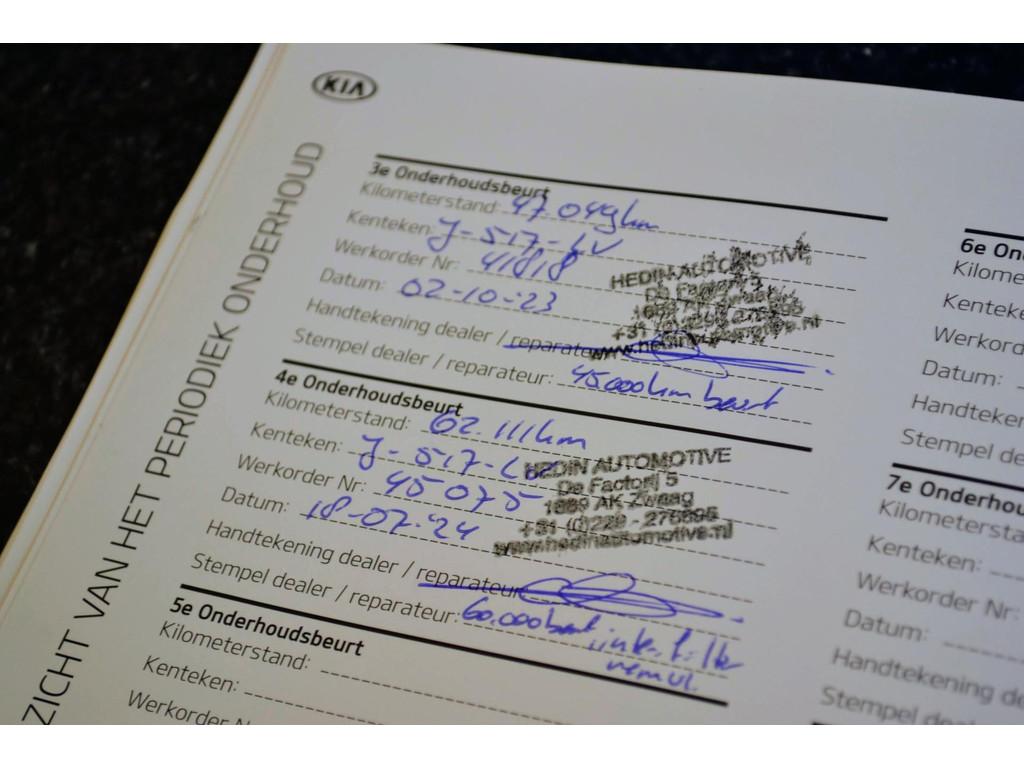 KIA
ZICHT VAN HET PERIODIEK ONDERHOUD
3e Onderhoudsbeurt
Kilometerstand: 47.049 km
Kenteken: J-517-LV
Werkorder Nr: 41818
Datum: 02-10-'23
Handtekening dealer / reparateur
Stempel dealer / reparateur: 45.000 km beurt
HEDIN AUTOMOTIVE
De Factorij 5
4e Onderhoudsbeurt
Kilometerstand: 62.111 km
Kenteken: J-517-L
Werkorder Nr: 45075
Datum: 18-07-'24
Handtekening dealer / reparateur
Stempel dealer / reparateur: 60.000 beurt
HEDIN AUTOMOTIVE
De Factorij 5
1689 AK Zwaag
+31 (0)229 - 276895
www.hedinautomotive.nl
5e Onderhoudsbeurt
Kilometerstand:
Kenteken:
Werkorder Nr:
6e On
Kilome
Kenteke
Werkord
Datum:
Handteken
Stempel de
7e Onderhou
Kilometersta
Kenteken:
Werkorder Nr:
Datum:
Handtekening de
Stempel deal